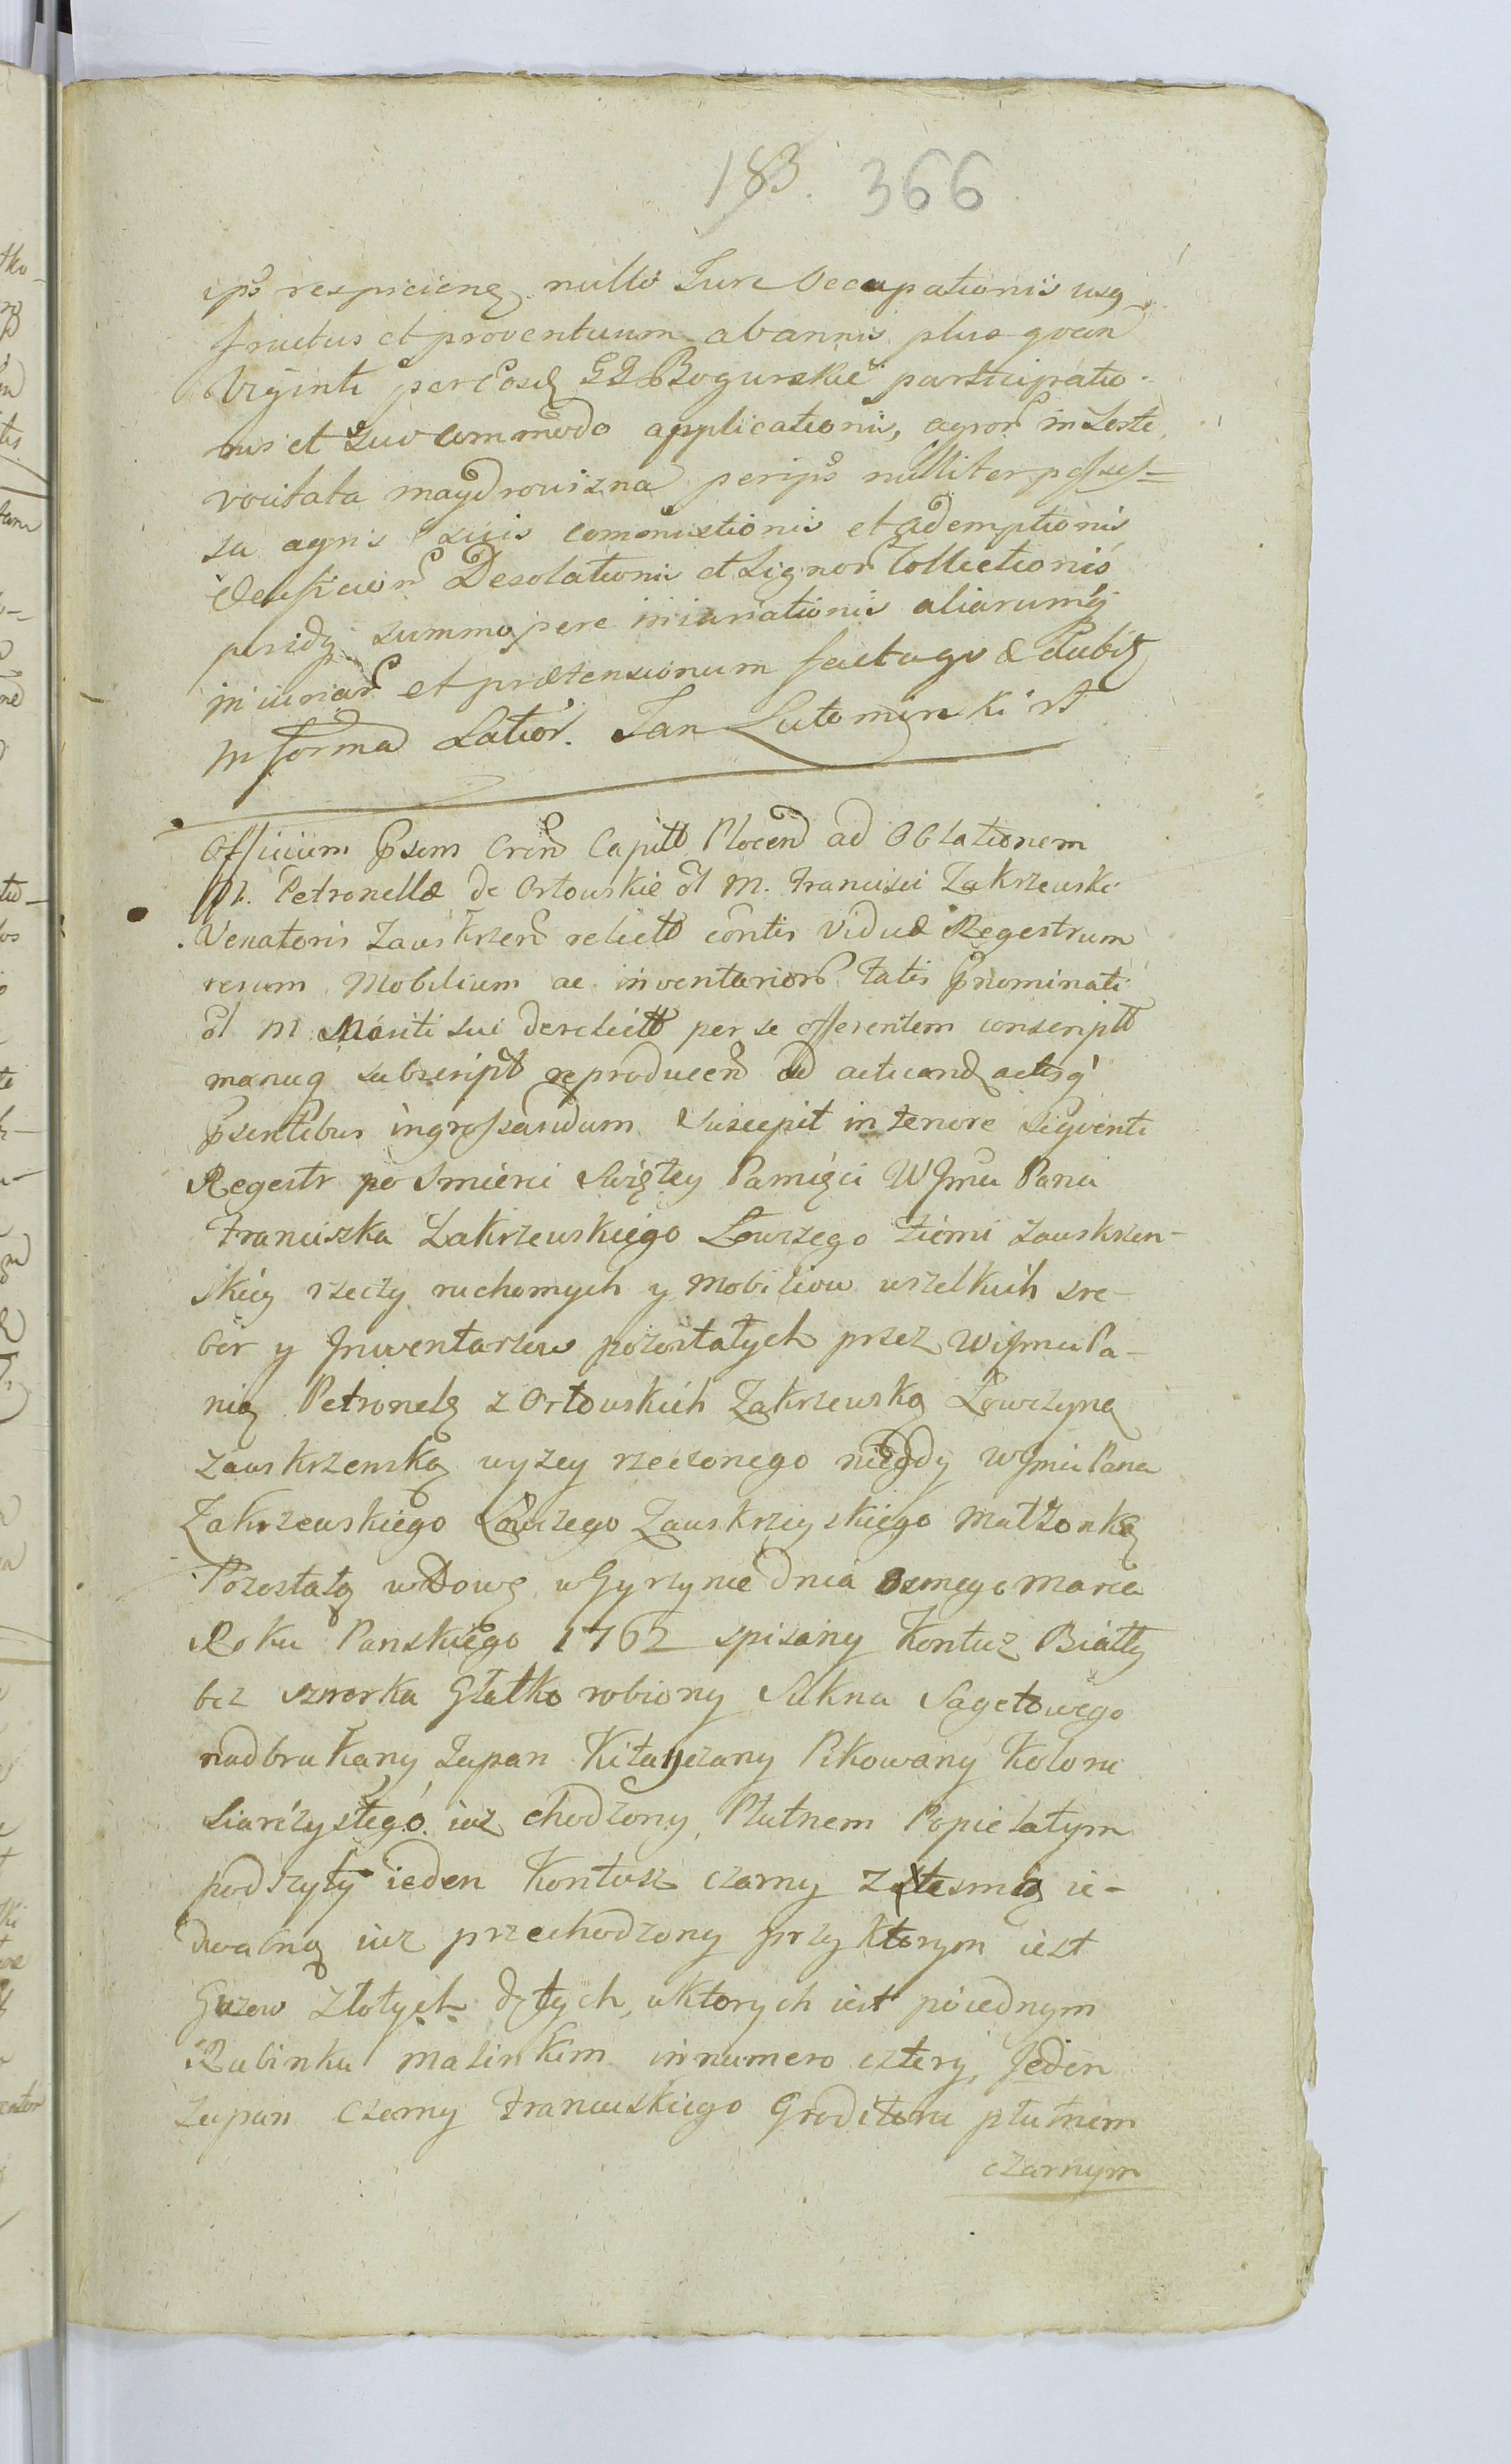 183. 366
ips respicieng nullo Iure Occupationis usq
fructus et proventuum ab annis plus quam
Viginti per eosd GG Bogurskie participatio-
nis et suo commodo applicationis, agror in Leste
vocitata maydrowizna per ips nulliter posses-
sa agris suis commistionis et ademptionis
Desolationis et Lignor Collectionis
summopere iniuriationis aliarumq
iniuriar et prætensionum
In forma Latior. Jan Lutominski
Officium Psens Cren Capitl Plocen ad Oblationem
M. Petronellæ de Orłowskie ol M. Francisci Zakrzewski
Venatoris Zawskrzen relictæ contis Viduæ Regestrum
rerum Mobilium ac inventarior Tatis Pnominati
ol M Mariti sui derelict per se offerentem conscript
manuq subscript reproducen ad acticand actisq
Psentibus ingrossandum Suscepit in tenore seqventi
Regestr po Smierci Swiętey Pamięci WJmci Pana
Franciszka Zakrzewskiego Łowczego Ziemi zawskrzen-
skiey rzeczy ruchomych y Mobiliow wszelkich sre-
ber y Jnwentarzew pozostałych przez WJmci Pa-
nią Petronelę z Orłowskich Zakrzewską Łowczyną
zawskrzenską wyzey rzeczonego niegdy WJmci Pana
Zakrzewskiego Łowczego Zawskrzyskiego Małzonkę
Pozostałą wDowę w Gyrzynie Dnia osmego Marca
Roku Panskiego 1762 spisany Kontusz Biały
bez sznorka Głatko robiony Sukna Sagetowego
nadbrukany Zupan Kitayczany Pikowany Koloru
Siarczystego iuz chodzony Płutnem Popielatym
podszyty ieden Kontusz czarny z tesmą ie-
dwabną iuz przechodzony przy ktorym iest
Guzow Złotych dętych, w ktorych iest po iednym
Rubinku malinkim in numero cztery, Jeden
Zupan Czarny Francuskiego Grodetoru płutnem
czarnym